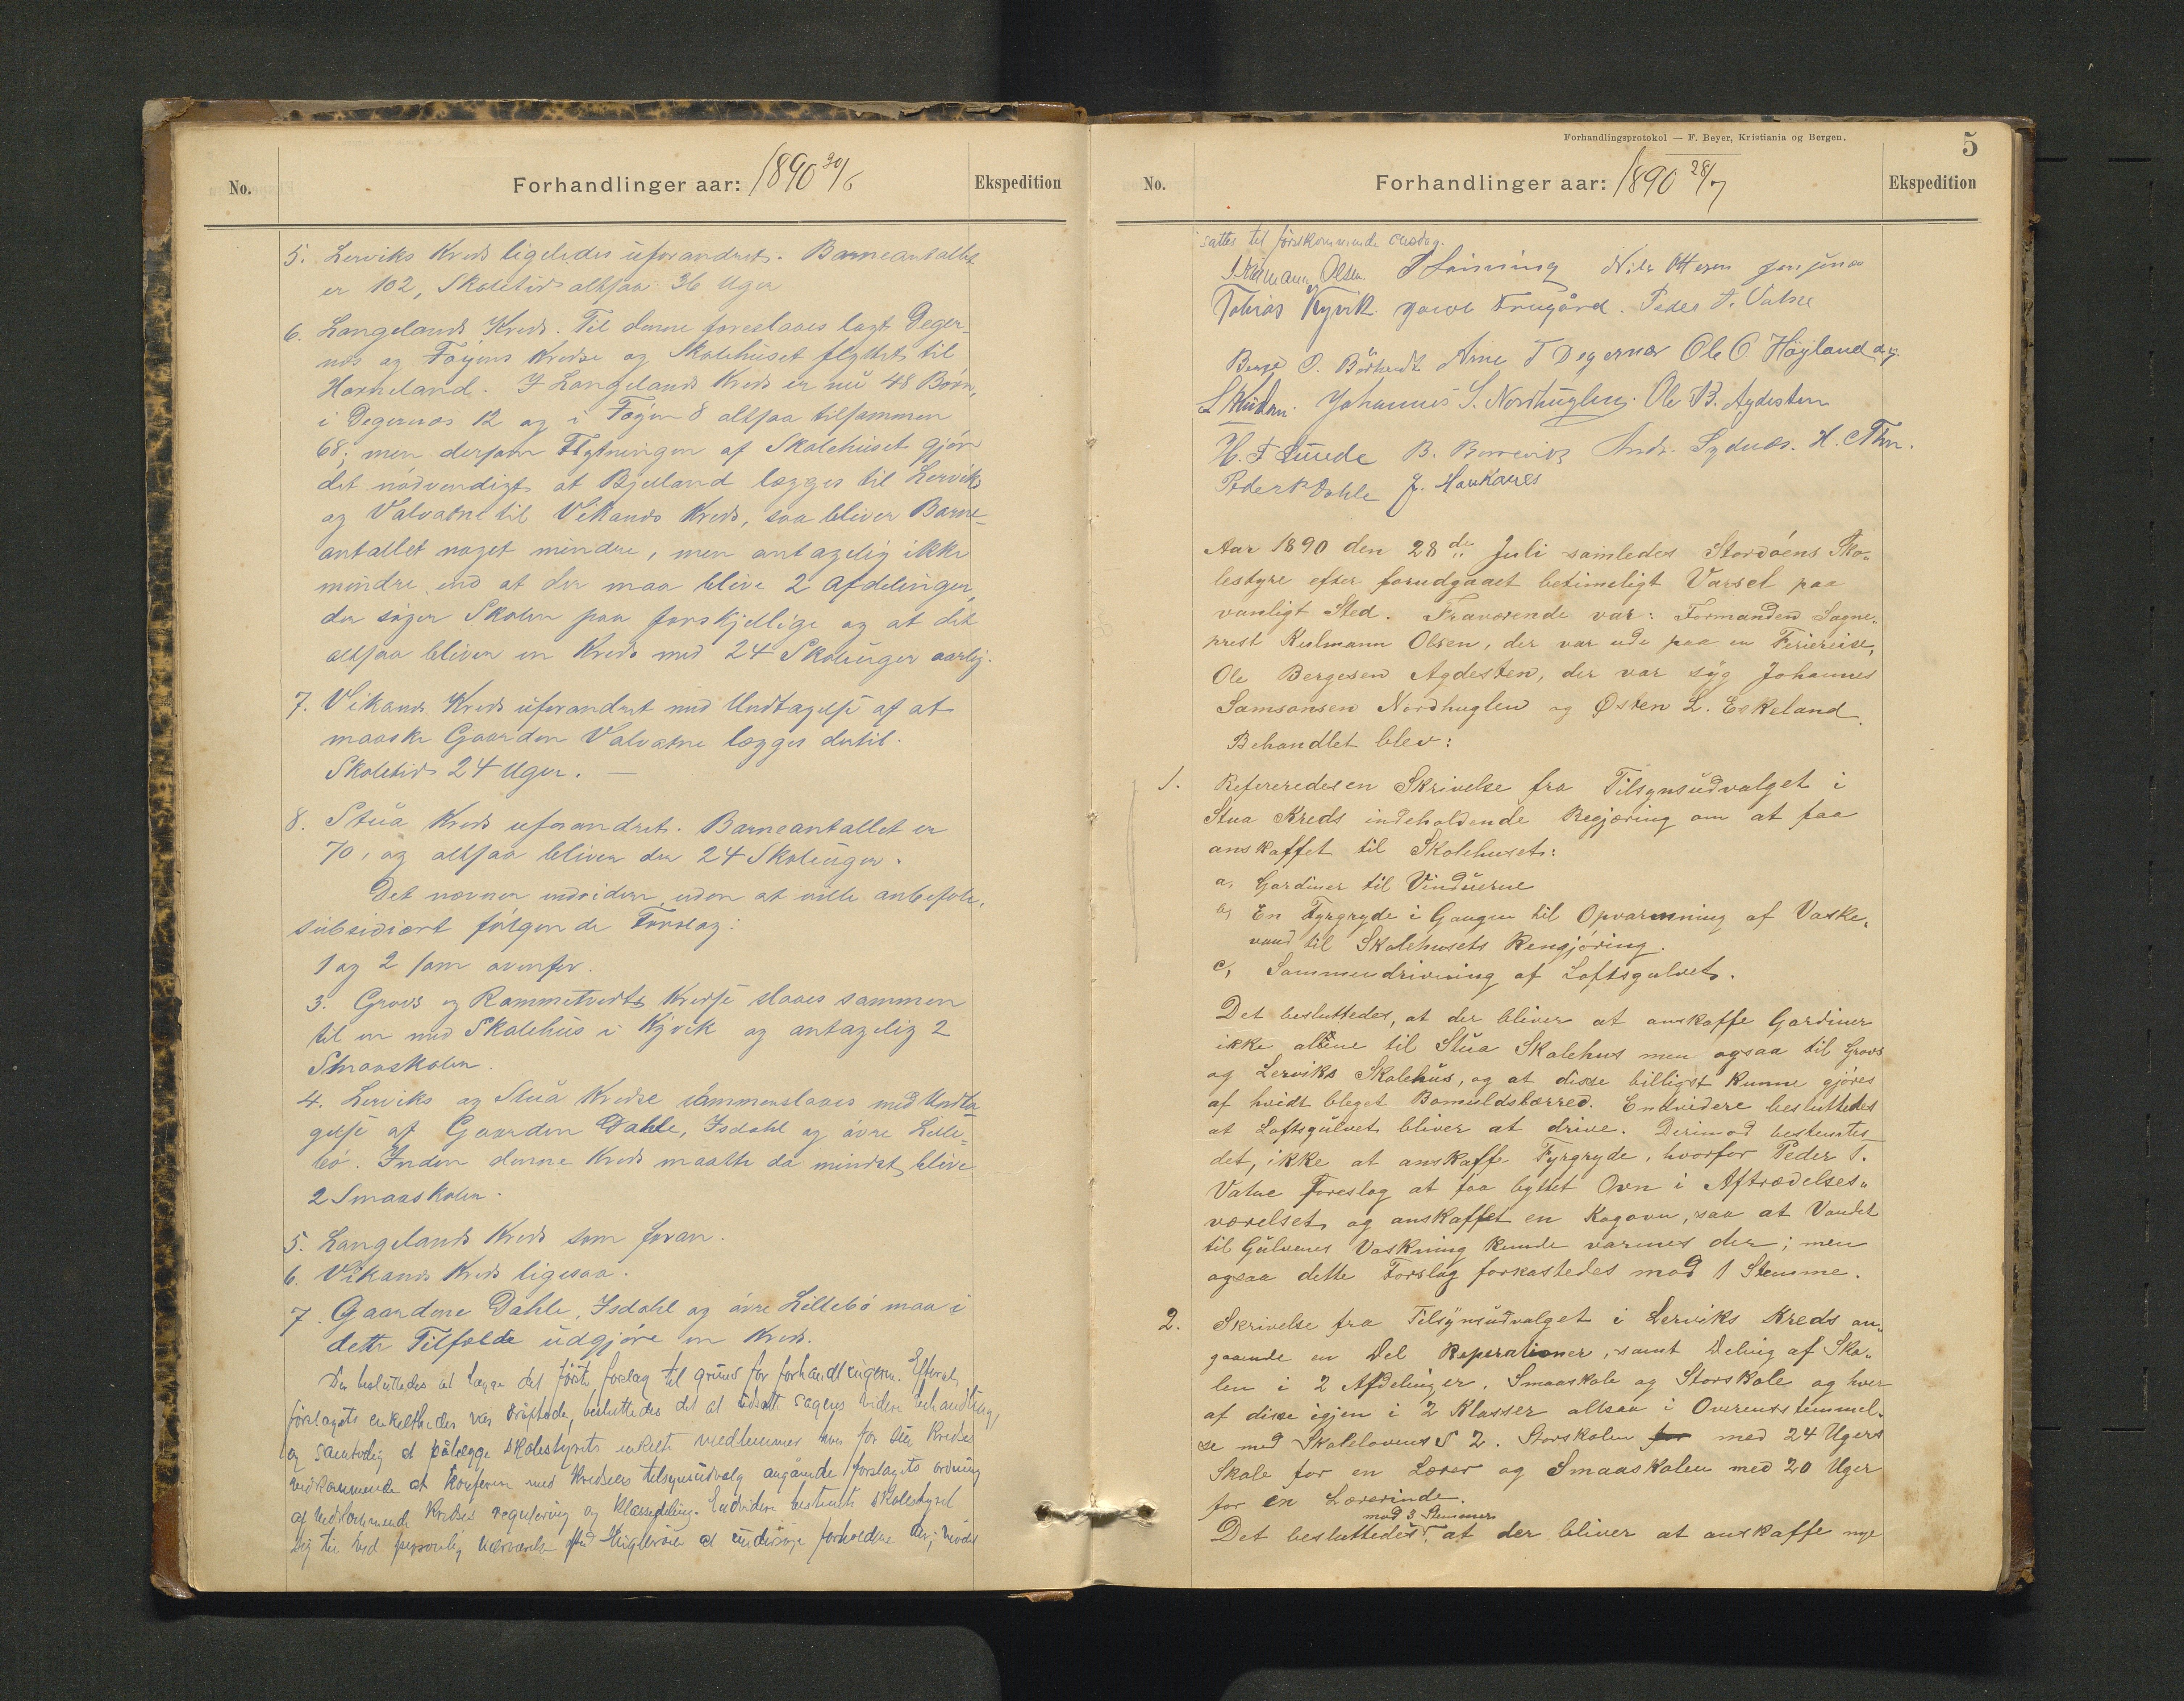 No.
Forhandlinger aar: 1890 30/6
Ekspedition
5. Lerviks Kreds ligeledes uforandret. Barneantallet
er 102, Skoletid altsaa 36 Uger
6. Langelands Kreds. Til denne foreslaaes lagt Deger-
næs og Føyens Kredse og Skolehuset flyttet til
Horneland. I Langelands Kreds er nu 48 Børn,
i Degernæs 12 og i Føyen 8 altsaa tilsammen
68; men dersom Flytningen af Skolehuset gjør
det nødvendigt at Bjelland lægges til Lerviks
og Valvatne til Vikanes Kreds, saa bliver Barne-
antallet noget mindre, men antagelig ikke
mindre end at der maa blive 2 Afdelinger,
der søger Skolen paa forskjellige og at det
altsaa bliver en Kreds med 24 Skoleuger aarlig.
7. Vikanes Kreds uforandret med Undtagelse af at
maaske Gaarden Valvatne lægges dertil.
Skoletid 24 Uger. —
8. Stua Kreds uforandret. Barneantallet er
70, og altsaa bliver der 24 Skoleuger.
Det nævner endvidere, uden at ville anbefale,
subsidiært følgende Forslag:
1 og 2 som ovenfor.
3. Grovs og Rommetveits Kredse slaaes sammen
til en med Skolehus i Kyvik og antagelig 2
Smaaskoler.
4. Lerviks og Stua Kredse sammenslaaes med Undta-
gelse af Gaarden Dahle, Isdahl og øvre Lille-
bø. Inden denne Kreds maatte da mindst blive
2 Smaaskoler.
5. Langelands Kreds som foran.
6. Vikanes Kreds ligesaa.
7. Gaardene Dahle, Isdahl og øvre Lillebø maa i
dette Tilfælde udgjøre en Kreds.
Der besluttedes at lægge det første forslag til grund for forhandlingerne. Efterat
forslagets enkeltheder var drøftede, besluttedes det at udsætte sagens videre behandling,
og samtidig at pålægge skolestyrets enkelte medlemmer hver for sin Kreds
vedkommende at konferere med Kredsens tilsynsudvalg angående forslagets ordning
af vedkommende Kredses regulering og klassedeling. Endvidere bestemte skolestyret
sig til ved personlig nærværelse på Hugløen at undersøge forholdene der; mødet
Forhandlingsprotokol — F. Beyer, Kristiania og Bergen.
5
No.
Forhandlinger aar: 1890 28/7
Ekspedition
sattes til førstkommende onsdag.
Olsen Nils Ottesen Jensønes
Tobias Kyvik. Frugård. Peder T. Vatne
Arne T Degernæs Ole O. Høyland
Johannes S. Nordhuglen. Ole B. Agdesten
H. T Tuude B. Andr. Sydnæs. H.
Peder Dahle J. Haukanes
Aar 1890 den 28de Juli samledes Stordøens Sko-
lestyre efter forudgaaet betimeligt Varsel paa
vanligt Sted. Fraværende var: Formanden Sogne-
prest Kulmann Olsen, der var ude paa en Feriereise,
Ole Bergesen Agdesten, der var syg Johannes
Samsonsen Nordhuglen og Østen L. Eskeland.
Behandlet blev:
1. Refereredes en Skrivelse fra Tilsynsudvalget i
Stua Kreds indeholdende Begjæring om at faa
anskaffet til Skolehuset:
a, Gardiner til Vinduerne
b, En Fyrgryde i Gangen til Opvarmning af Vaske-
vand til Skolehusets Rengjøring.
c, Sammendrivning af Loftsgulvet.
Det besluttedes, at der bliver at anskaffe Gardiner
ikke alene til Stua Skolehus men ogsaa til Grovs
og Lerviks Skolehus, og at disse billigst kunne gjøres
af hvidt bleget Bomuldslærred. Endvidere besluttedes
at Loftsgulvet bliver at drive. Derimod bestemtes
det, ikke at anskaffe Fyrgryde, hvorfor Peder T.
Vatne foreslog at faa byttet Ovn i Aftrædelses-
værelset og anskaffet en Kogovn, saa at Vandet
til Gulvenes Vaskning kunde varmes der; men
ogsaa dette Forslag forkastedes mod 1 Stemme.
2. Skrivelse fra Tilsynsudvalget i Lerviks Kreds an-
gaaende en Del Reperationer, samt Deling af Sko-
len i 2 Afdelinger, Smaaskole og Storskole og hver
af disse igjen i 2 Klasser altsaa i Overensstemmel-
se med Skolelovens § 2. Storskolen for med 24 Ugers
Skole for en Lærer og Smaaskolen med 20 Uger
for en Lærerinde.
mod 3 Stemmer
Det besluttedes, at der bliver at anskaffe nye